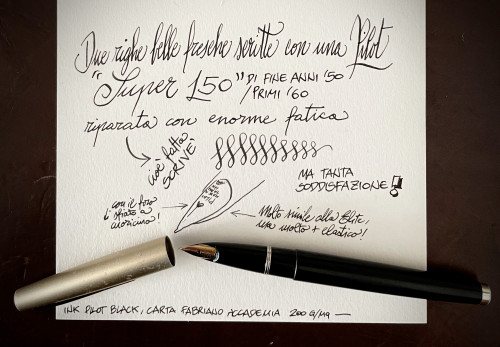 Due righe belle fresche scritte con una Pilot
"Super 150" DI FINE ANNI '50
/PRIMI '60
riparata con enorme fatica
cioè fatta
SCRIVE
MA TANTA
SODDISFAZIONE!
con il foro
di sfiato a
cuoricino!
Molto simile alla Elite,
ma molto + elastico!
INK PILOT BLACK, CARTA FABRIANO ACCADEMIA 200 G/MQ —